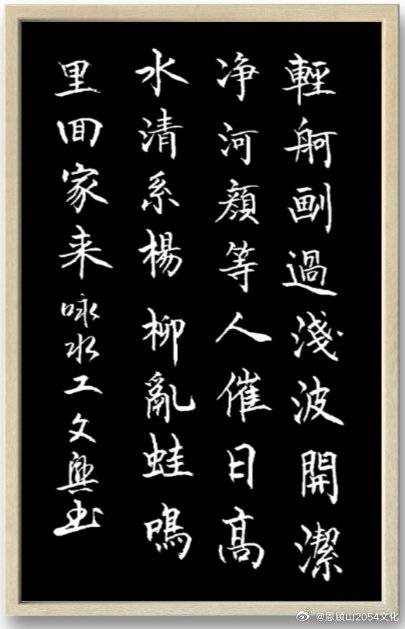 輕舸劃過淺波開潔
净河顏等人催日高
水清系楊柳亂蛙鳴
里回家来咏水工文興书
@恩顾山2054文化